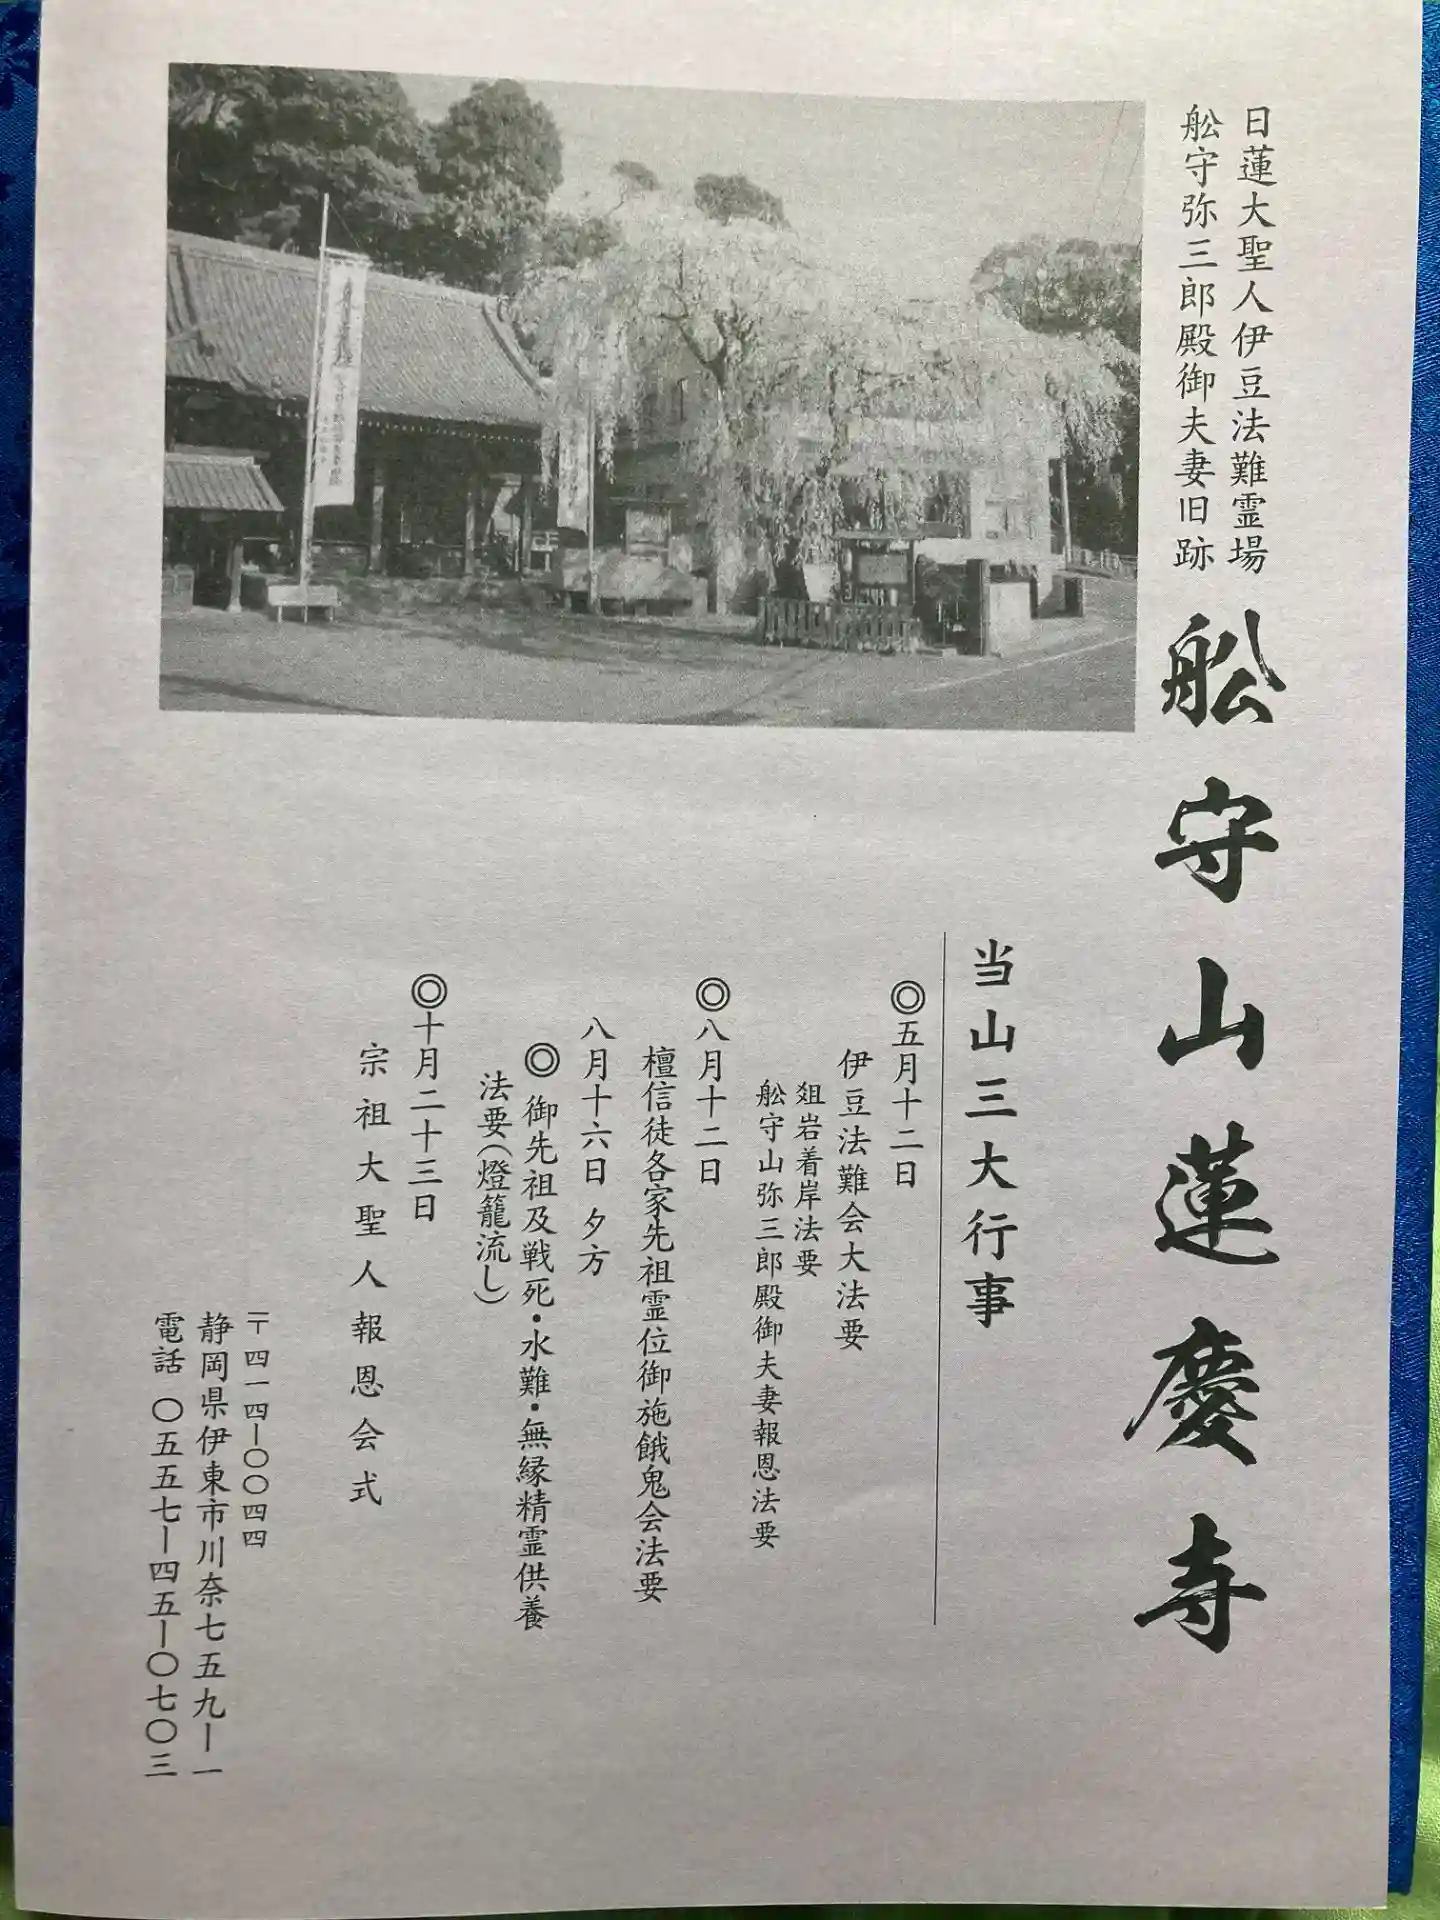 日蓮大聖人伊豆法難霊場
舩守弥三郎殿御夫妻旧跡
舩守山蓮慶寺
当山三大行事
◎五月十二日
伊豆法難会大法要
爼岩着岸法要
舩守山弥三郎殿御夫妻報恩法要
◎八月十二日
檀信徒各家先祖霊位御施餓鬼会法要
八月十六日 夕方
◎御先祖及戦死・水難・無縁精霊供養
法要(燈籠流し)
◎十月二十三日
宗祖大聖人報恩会式
〒四一四ー〇〇四四
静岡県伊東市川奈七五九ー一
電話 〇五五七ー四五ー〇七〇三